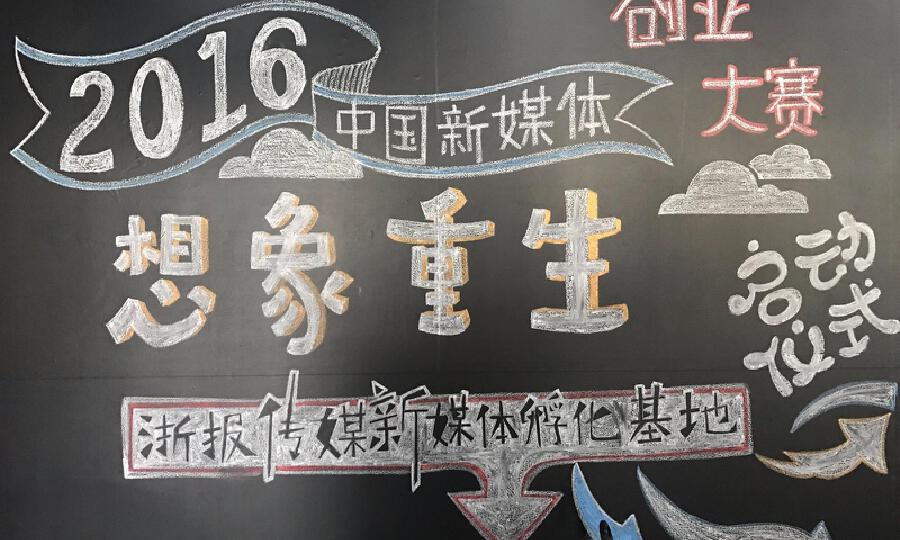 2016
中国新媒体
创业
大赛
想象重生
启动
仪式
浙报传媒新媒体孵化基地